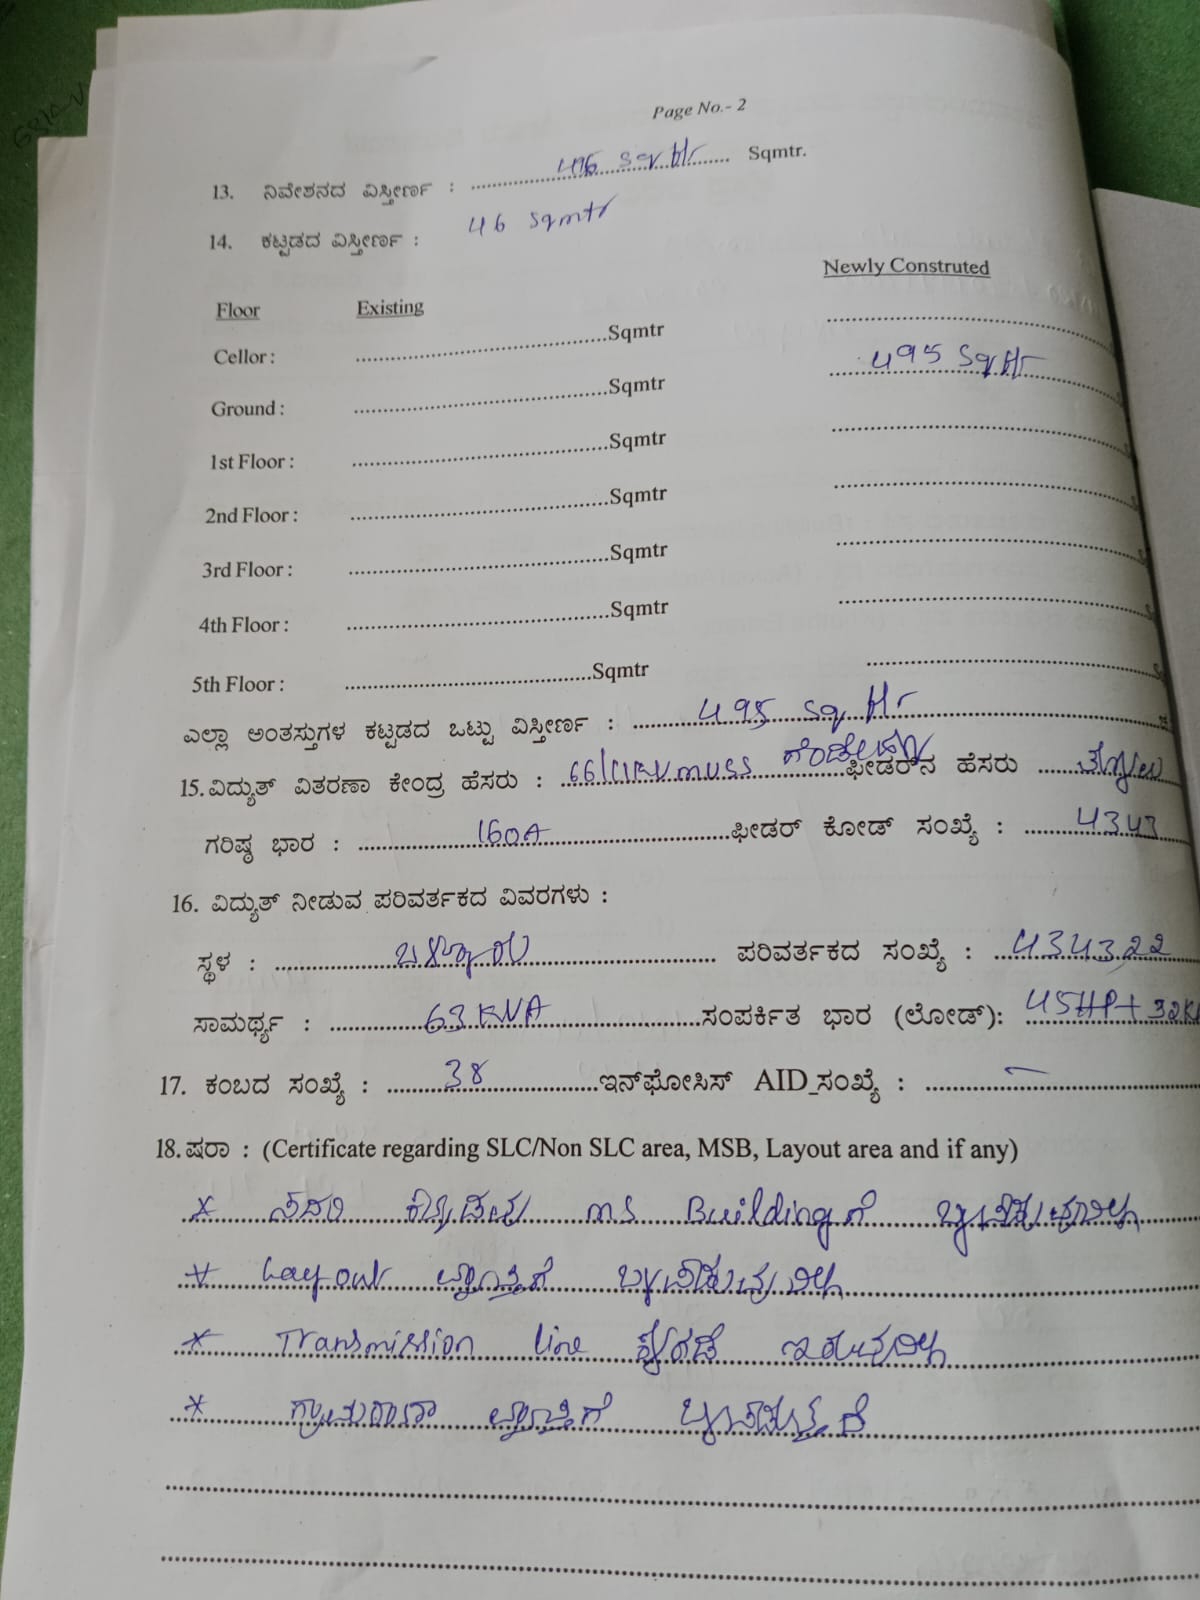 Page No.- 2
13. ನಿವೇಶನದ ವಿಸ್ತೀರ್ಣ : Sqmtr.
14. ಕಟ್ಟಡದ ವಿಸ್ತೀರ್ಣ : 46 Sqmtr
Newly Construted
Floor Existing
Cellor : Sqmtr
Ground : Sqmtr 495
1st Floor : Sqmtr
2nd Floor : Sqmtr
3rd Floor : Sqmtr
4th Floor : Sqmtr
5th Floor : Sqmtr
ಎಲ್ಲಾ ಅಂತಸ್ತುಗಳ ಕಟ್ಟಡದ ಒಟ್ಟು ವಿಸ್ತೀರ್ಣ : 495
15. ವಿದ್ಯುತ್ ವಿತರಣಾ ಕೇಂದ್ರ ಹೆಸರು : ಫೀಡರ್‌ನ ಹೆಸರು
ಗರಿಷ್ಠ ಭಾರ : 160A ಫೀಡರ್ ಕೋಡ್ ಸಂಖ್ಯೆ : 4343
16. ವಿದ್ಯುತ್ ನೀಡುವ ಪರಿವರ್ತಕದ ವಿವರಗಳು :
ಸ್ಥಳ : ಪರಿವರ್ತಕದ ಸಂಖ್ಯೆ :
ಸಾಮರ್ಥ್ಯ : 63 KVA ಸಂಪರ್ಕಿತ ಭಾರ (ಲೋಡ್): 45HP+
17. ಕಂಬದ ಸಂಖ್ಯೆ : 38 ಇನ್‌ಫೋಸಿಸ್ AID_ಸಂಖ್ಯೆ : —
18. ಷರಾ : (Certificate regarding SLC/Non SLC area, MSB, Layout area and if any)
* ಸದರಿ ಕಟ್ಟಡವು ms Buildingಗೆ
* Layout ವ್ಯಾಪ್ತಿಗೆ
* Transmission line ಕೆಳಗಡೆ ಇರುವುದಿಲ್ಲ
* ವ್ಯಾಪ್ತಿಗೆ